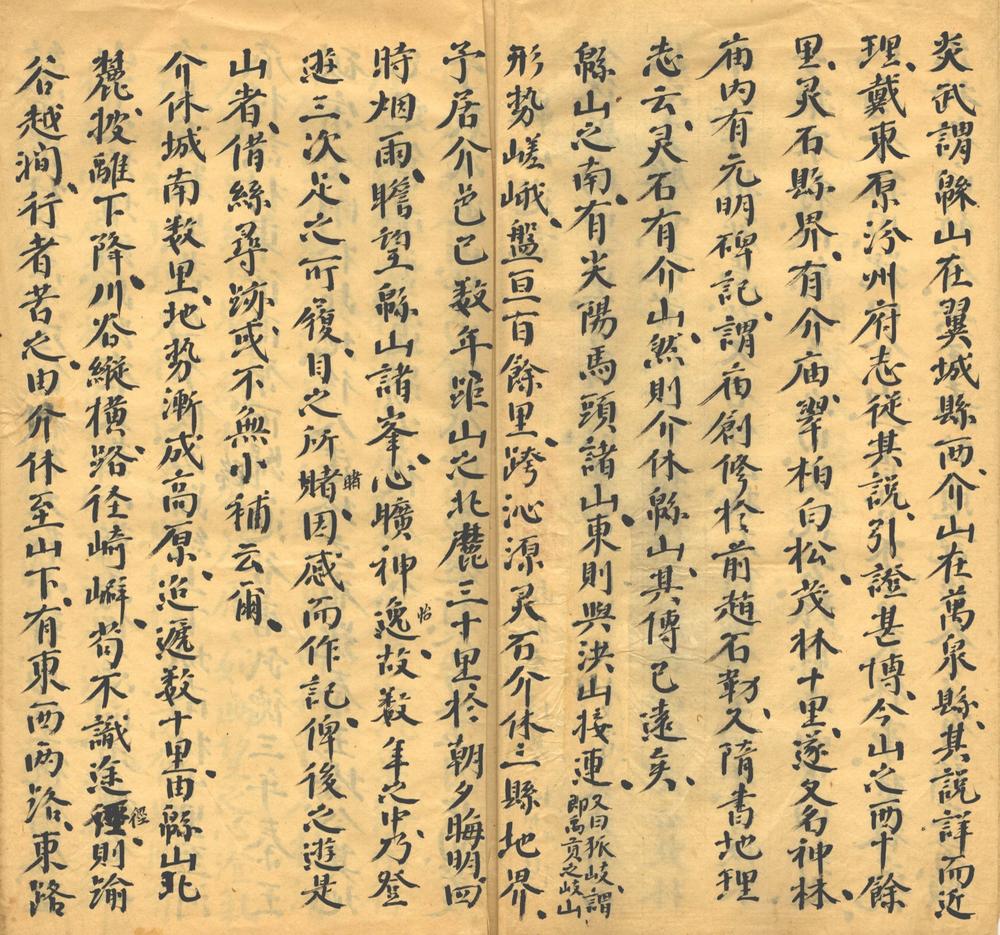 炎武謂緜山在翼城縣西介山在萬泉縣其説詳而近
理戴東原汾州府志從其説引證甚博今山之西十餘
里灵石縣界有介庙翠柏白松茂林十里遂又名神林
庙内有元明碑記謂庙創修於前趙石勒又隋書地理
志云灵石有介山然則介休緜山其傳已遠矣
緜山之南有尖陽馬頭諸山東則與洪山接連又曰狐岐謂即禹貢之岐山
形勢嵯峨盤亘百餘里跨沁源灵石介休三縣地界
予居介邑已数年距山之北麓三十里於朝夕晦明四
時烟雨瞻望緜山諸峯心曠神逸怡故数年之中乃登
遊三次足之所履目之所賭睹因感而作記俾後之遊是
山者借絲尋跡或不無小補云爾
介休城南数里地势漸成高原迨遞数十里由緜山北
麓披離下降川谷縱横路径崎嶇苟不識途徑則踰
谷越澗行者苦之由介休至山下有東西两路東路